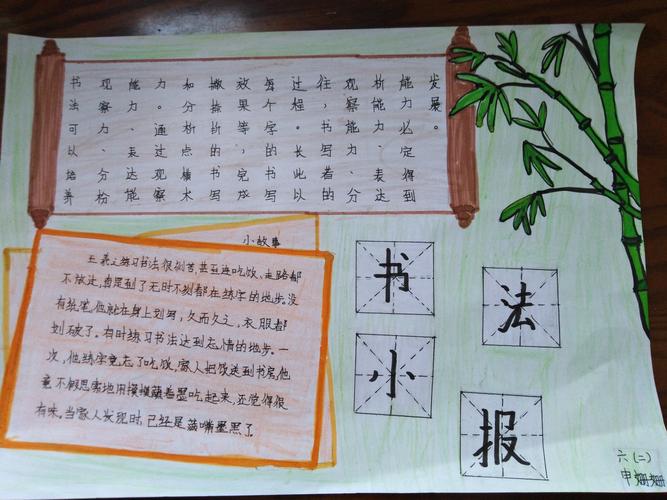 书法可以培养
观察力、分析
能力、表达能
力。通过观察
如分析点横术
撇捺折的书写
效果等，完成
每个字的书写
过程。长此以
往，书写者的
观察能力、分
析能力、表达
能力必定得到
发展。
小故事
王羲之练习书法很刻苦，甚至连吃饭、走路都
不放过，真是到了无时不刻都在练字的地步。没
有纸笔，他就在身上划写，久而久之，衣服都
划破了。有时练习书法达到忘情的地步。一
次，他练字竟忘了吃饭，家人把饭送到书房，他
竟不假思索地用馍馍蘸着墨吃起来，还觉得很
有味。当家人发现时，已经是满嘴墨黑了。
书法
小报
六(二)
申姗姗